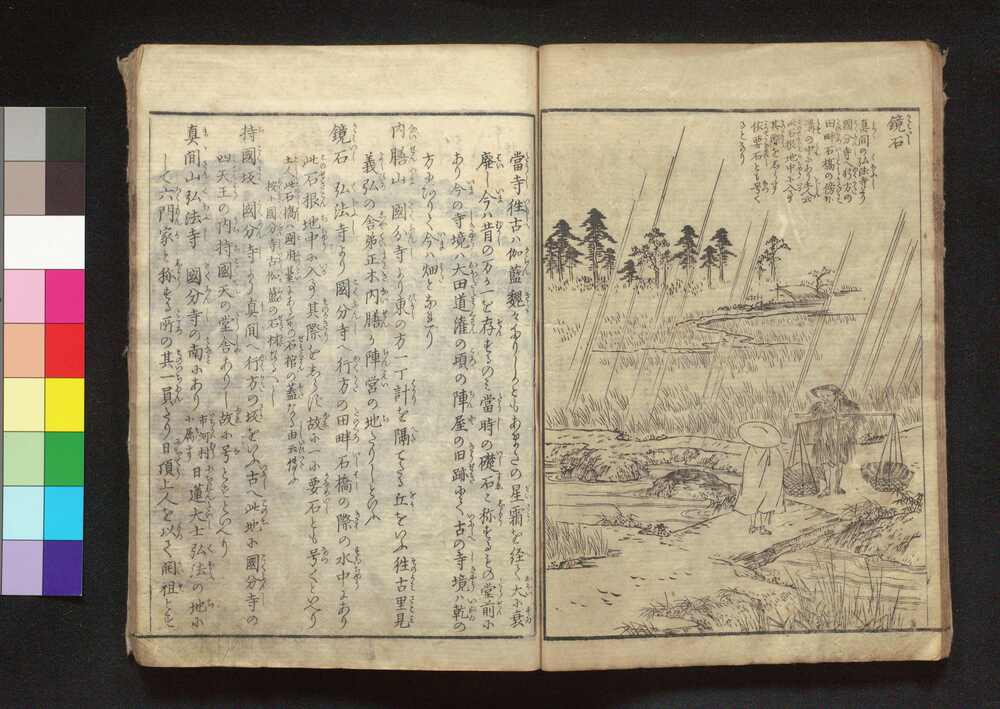 鏡石
真間の弘法寺より
國分寺へ行方の
田畔石橋の傍
溝の中にあり
此石根地中に入
其際をしらず
依て要石とも号く
となり
當寺往古ハ伽藍魏々たりしかどもあまたの星霜を経て大に衰
廃し今ハ昔の万が一を存するのミ當時の礎石と称するもの堂前に
あり今の寺境ハ大田道灌の頃の陣屋の旧跡にて古の寺境ハ乾の
方にありて今ハ畑となれり
内膳山 國分寺より東の方一丁計を隔てたる丘をいふ往古里見
義弘の舎弟正木内膳が陣営の地たりしといふ
鏡石 弘法寺より國分寺へ行方の田畔石橋の際の水中にあり
此石根地中に入りて其際をしらず故に一に要石とも号くといへり
土人此石橋ハ國府臺にある所の石棺の蓋なる由云傳ふ
按に國分寺古伽藍の石材なるべし
持國坂 國分寺より真間へ行方の坂をいふ古へ此地に國分寺の
四天王の内持國天の堂舎ありし故に号とすといへり
真間山弘法寺 國分寺の南にあり市河村に属す日蓮大士弘法の地に
して六門家と称する所の其一員たり日頂上人を以て開祖とす